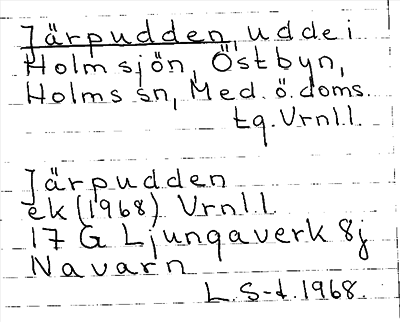 Järpudden udde i
Holmsjön, Östbyn,
Holms sn, Med. ö. doms.
tg. Vrnl.l.
Järpudden
ek (1968) Vrnl.l
17 G Ljungaverk 8j
Navarn
L. S-d. 1968.